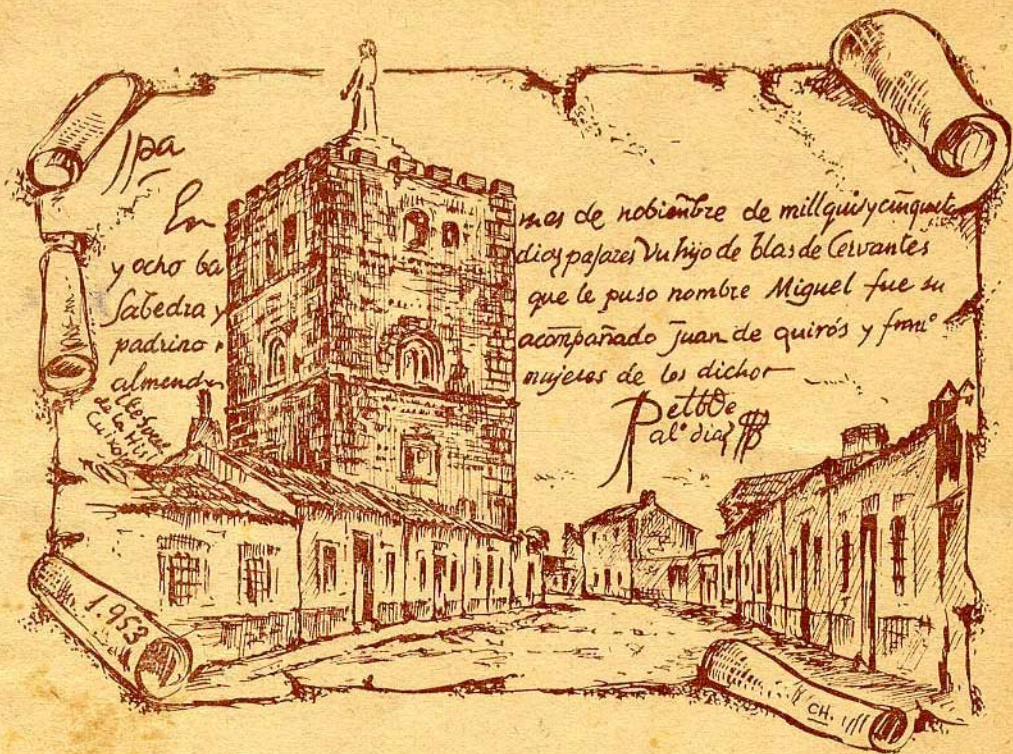 En mes de nobiẽmbre de mill quis y cinquẽta
y ocho ba dioz pajares Vn hijo de blas de Cervantes
Sabedra y que le puso nombre Miguel fue su
padrino acõmpañado Juan de quirós y franº
almend mujeres de los dichos
de la Hist
1.953
CH.